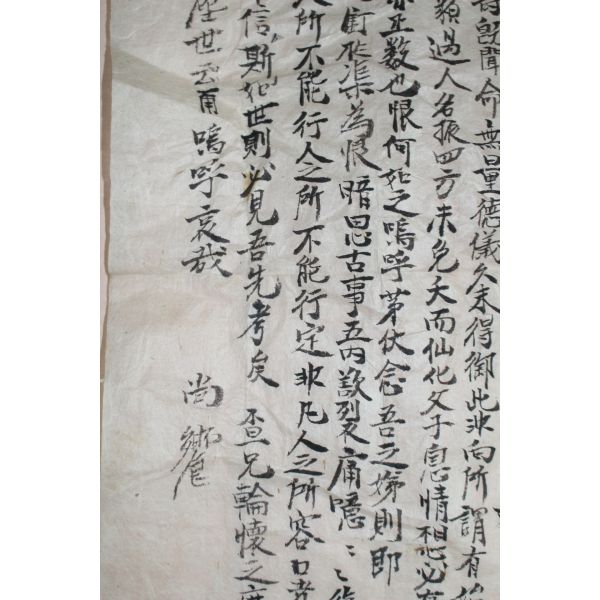 旣聞命無量德儀久未得御此非向所謂有
類過人名振四方未免夭而仙化父子恩情相必
亦正數也恨何如之嗚呼茅伏念吾之娣則即
渠為恨暗思古事五內欲裂痛噫
人所不能行人之所不能行定非凡人之所容口者
信斯世則必見吾先考矣 查兄輪懷之
塵世云爾嗚呼哀哉
尚饗